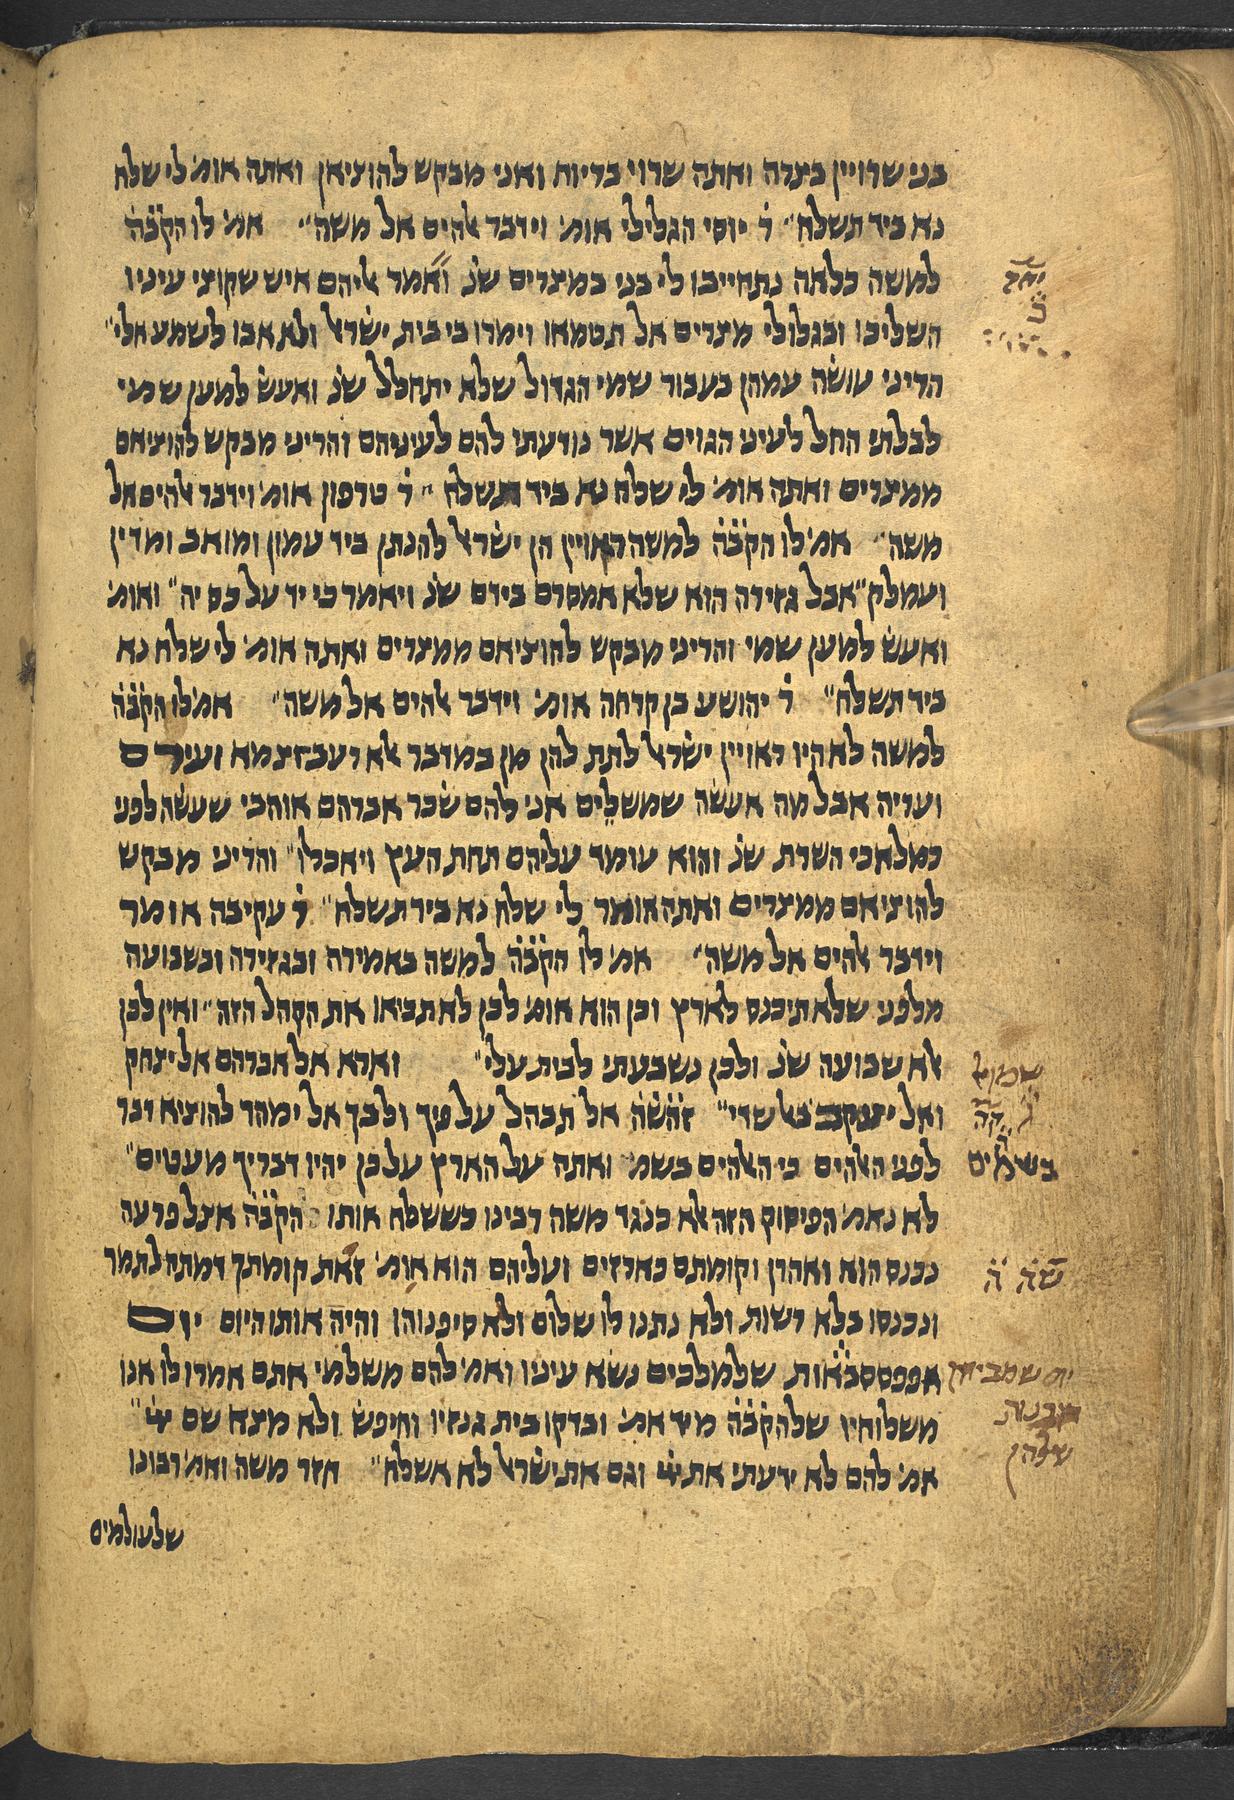 בני שרויין בצרה ואתה שרוי בריוח ואני מבקש להוציאן ואתה אומ׳ לי שלח
נא ביד תשלח״ ר׳ יוסי הגלילי אומ׳ וידבר אלהים אל משה״ אמ׳ לו הקבה
למשה כלאה נתחייבו לי בני במצרים שנ׳ ואמר אליהם איש שקוצי עיניו
השליכו ובגלולי מצרים אל תטמאו וימרו בי בית ישראל ולא אבו לשמע אלי״
הריני עושה עמהן בעבור שמי הגדול שלא יתחלל שנ׳ ואעש למען שמי
לבלתי החל לעיני הגוים אשר נודעתי להם לעיניהם והריני מבקש להוציאם
ממצרים ואתה אומ׳ לי שלח נא ביד תשלח״ ר׳ טרפון אומ׳ וידבר אלהים אל
משה״ אמ׳ לו הקבה למשה ראויין הן ישראל להנתן ביד עמון ומואב ומדין
ועמלק״ אבל גזירה הוא שלא אמסרם בידם שנ׳ ויאמר כי יד על כס יה״ ואומ׳
ואעש למען שמי והריני מבקש להוציאם ממצרים ואתה אומ׳ לי שלח נא
ביד תשלח״ ר׳ יהושע בן קרחה אומ׳ וידבר אלהים אל משה״ אמ׳ לו הקבה
למשה לא היו ראויין ישראל לתת להן מן במדבר אלא רעב וצמא ועירם
ועריה אבל מה אעשה שמשלים אני להם שכר אברהם אוהבי שעשה לפני
כמלאכי השרת שנ׳ והוא עומד עליהם תחת העץ ויאכלו״ והריני מבקש
להוציאם ממצרים ואתה אומר לי שלח נא ביד תשלח״ ר׳ עקיבה אומר
וידבר אלהים אל משה״ אמ׳ לו הקבה למשה באמירה ובגזירה ובשבועה
מלפני שלא תיכנס לארץ וכן הוא אומ׳ לכן לא תביאו את הקהל הזה״ ואין לכן
אלא שבועה שנ׳ ולכן נשבעתי לבית עלי״ וארא אל אברהם אל יצחק
ואל יעקב באל שדי״ זהשה אל תבהל על פיך ולבך אל ימהר להוציא דבר
לפני האלהים כי האלהים בשמ׳ ואתה על הארץ על כן יהיו דבריך מעטים״
לא נאמ׳ הפיסוק הזה אלא כנגד משה רבינו כששלח אותו הקבה אצל פרעה
נכנס הוא ואהרן וקומתם כארזים ועליהם הוא אומ׳ זאת קומתך דמתה לתמר
ונכנסו בלא רשות ולא נתנו לו שלום ולא סיפנוהו והיה אותו היום יום
אפפסנבאות שלמלכים נשא עיניו ואמ׳ להם משלמי אתם אמרו לו אנו
משלוחיו שלהקבה מיד אמ׳ ובדקו בית גנזיו וחיפש ולא מצא שם
אמ׳ להם לא ידעתי את וגם את ישראל לא אשלח״ חזר משה ואמ׳ רבונו
שלעולמים
שמואל
בשמים
שה ה
יום שמביאין
שלהן